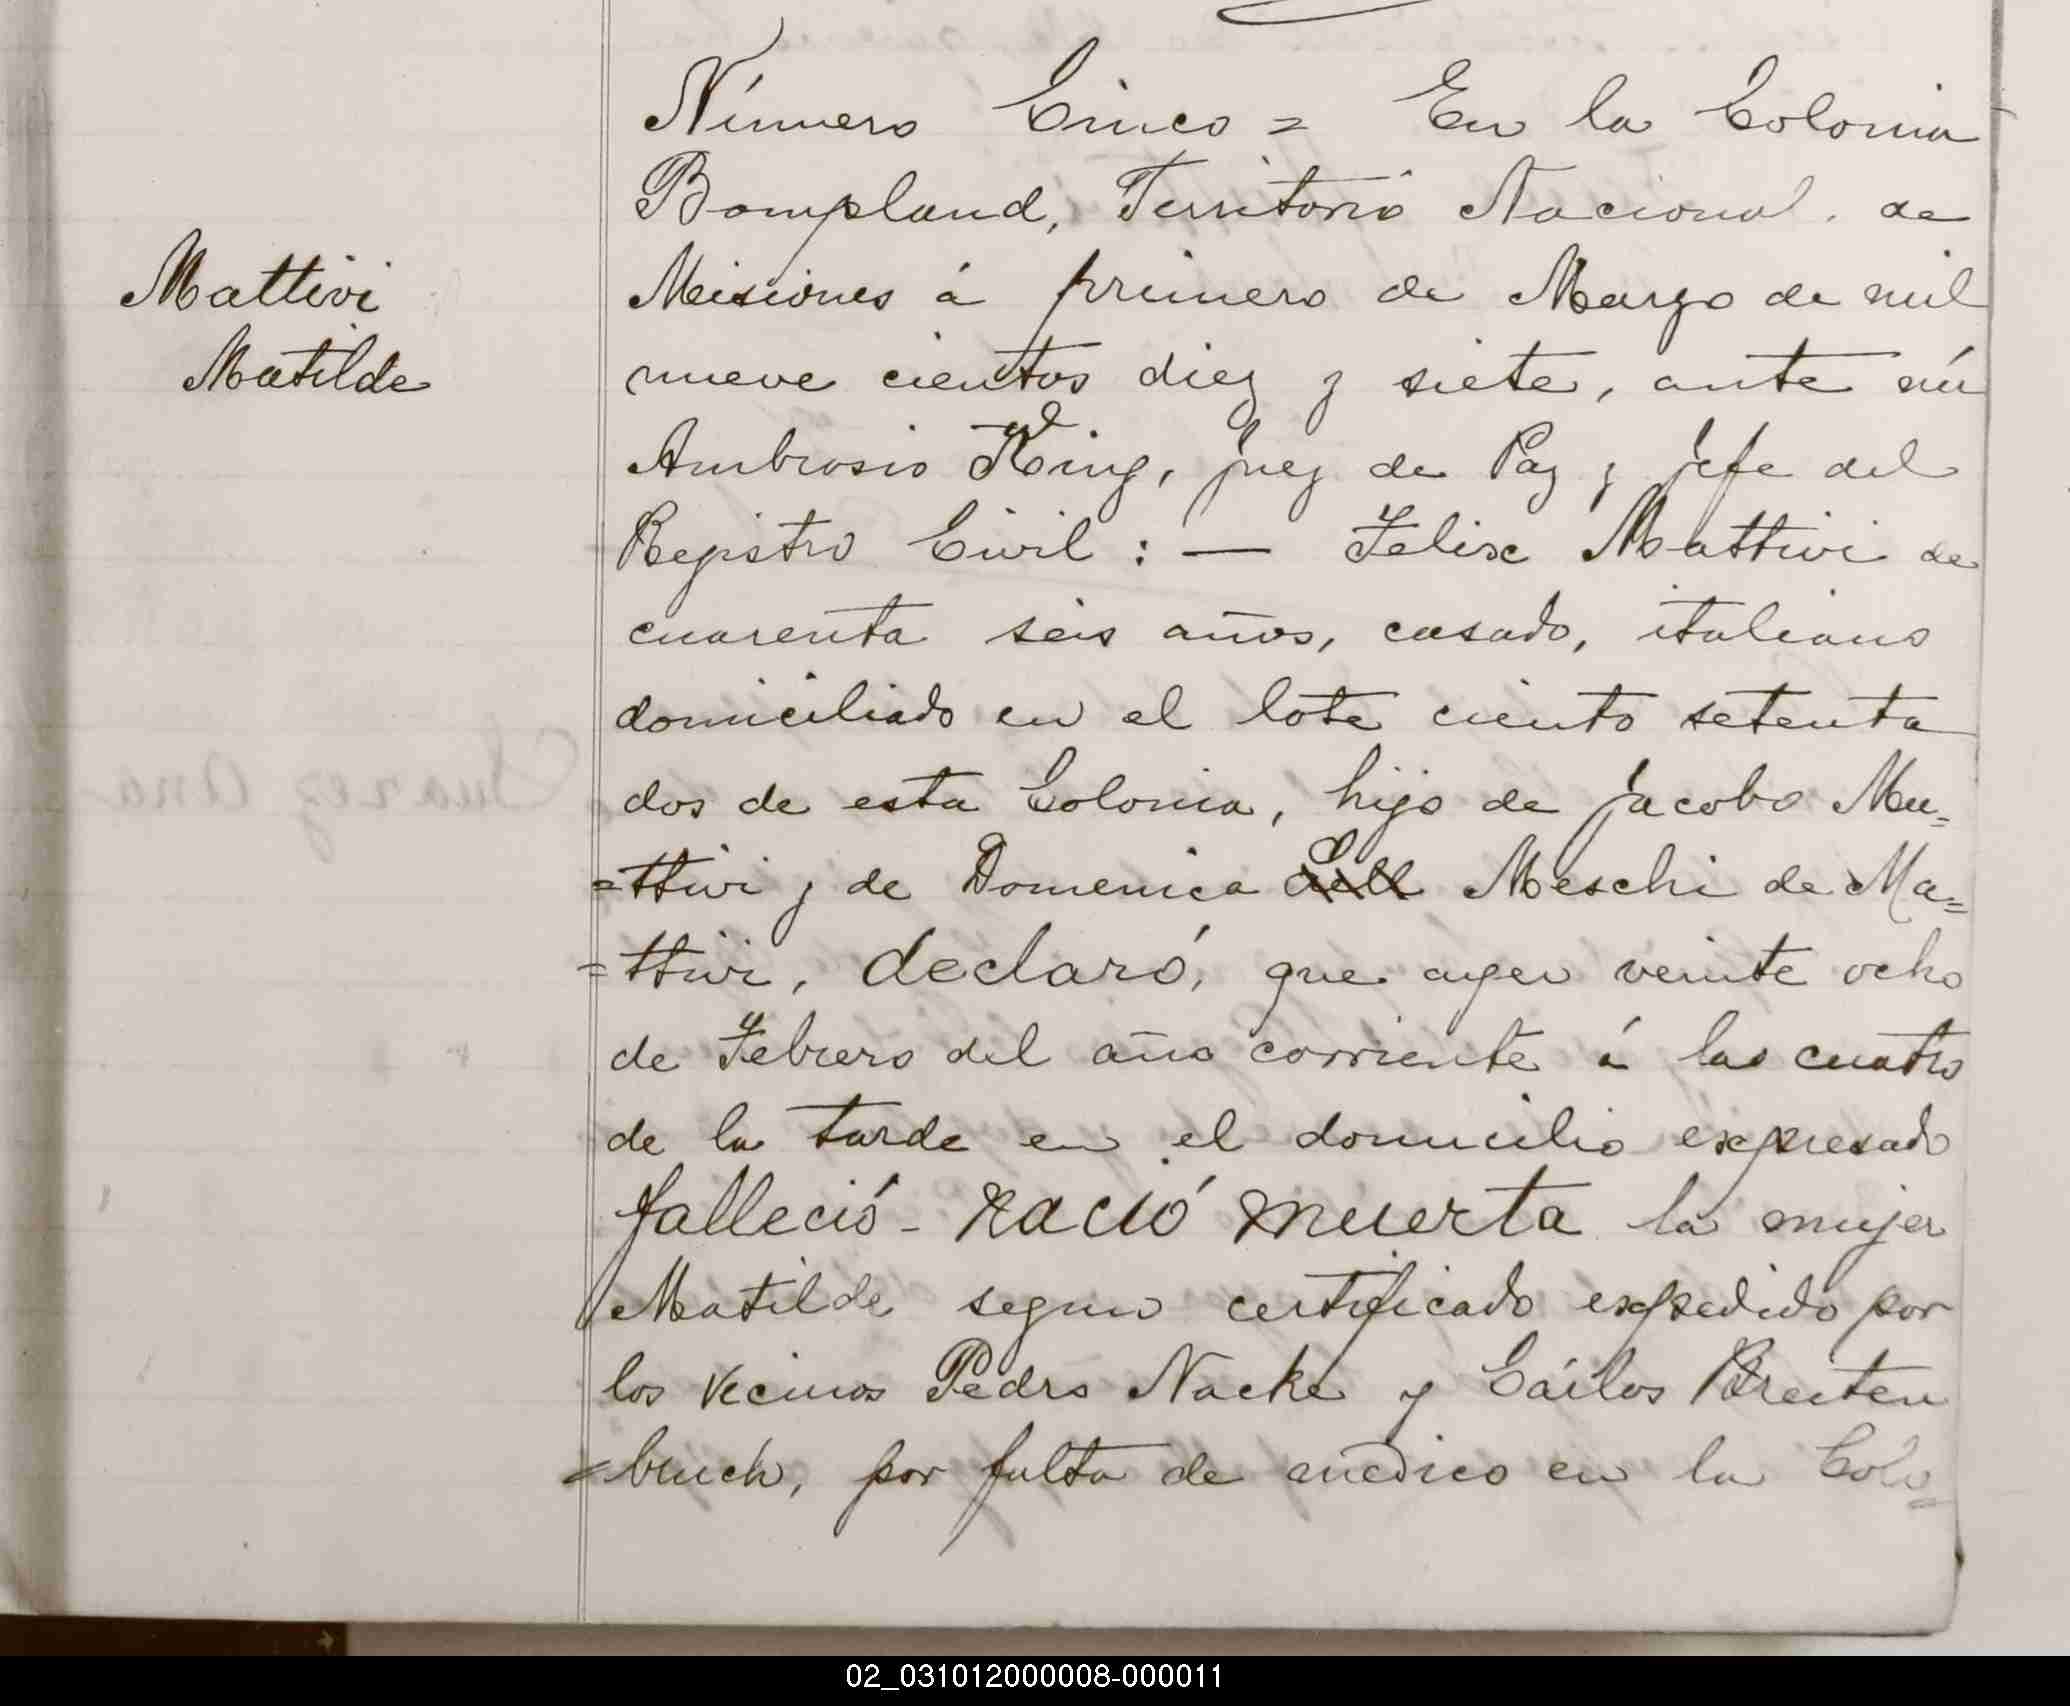 Número Cinco = En la Colonia
Bompland, Territorio Nacional de
Mattivi
Matilde
Misiones á primero de Marzo de mil
nueve cientos diez y siete, ante mí
Ambrosio King, juez de Paz y jefe del
Registro Civil : — Felix Mattivi de
cuarenta seis años, casado, italiano
domiciliado en el lote ciento setenta
dos de esta Colonia, hijo de Jacobo Ma=
=ttivi y de Domenica Meschi de Ma=
=ttivi, declaró, que ayer veinte ocho
de Febrero del año corriente á las cuatro
de la tarde en el domicilio expresado
falleció - nació muerta la mujer
Matilde segun certificado expedido por
los vecinos Pedro Nacke y Cárlos Breiten
=bruch, por falta de medico en la Colo=
Suarez Ana
02_031012000008-000011